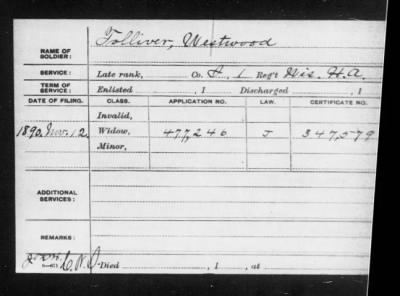 NAME OF SOLDIER: Tolliver, Westwood
SERVICE: Late rank, Co. H. 1 Reg't Wis. H.A.
TERM OF SERVICE: Enlisted , 1 Discharged , 1
DATE OF FILING. CLASS. APPLICATION NO. LAW. CERTIFICATE NO.
Invalid,
1890. Nov. 12. Widow, 477,246 J 347,579
Minor,
ADDITIONAL SERVICES:
REMARKS:
Died , 1 , at